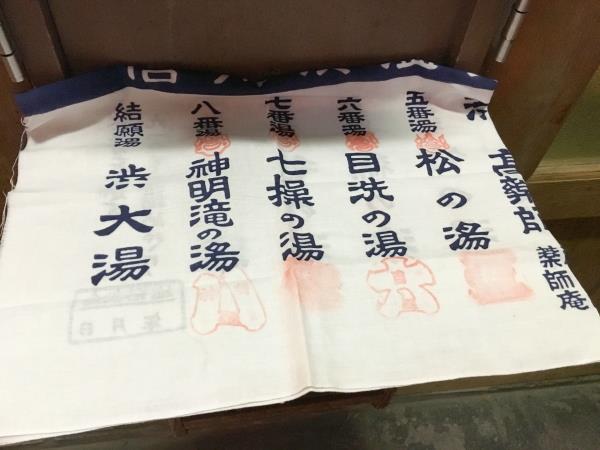 高薬師
薬師庵
五番湯
松の湯
六番湯
目洗の湯
七番湯
七操の湯
八番湯
神明滝の湯
結願湯
渋大湯
年月日